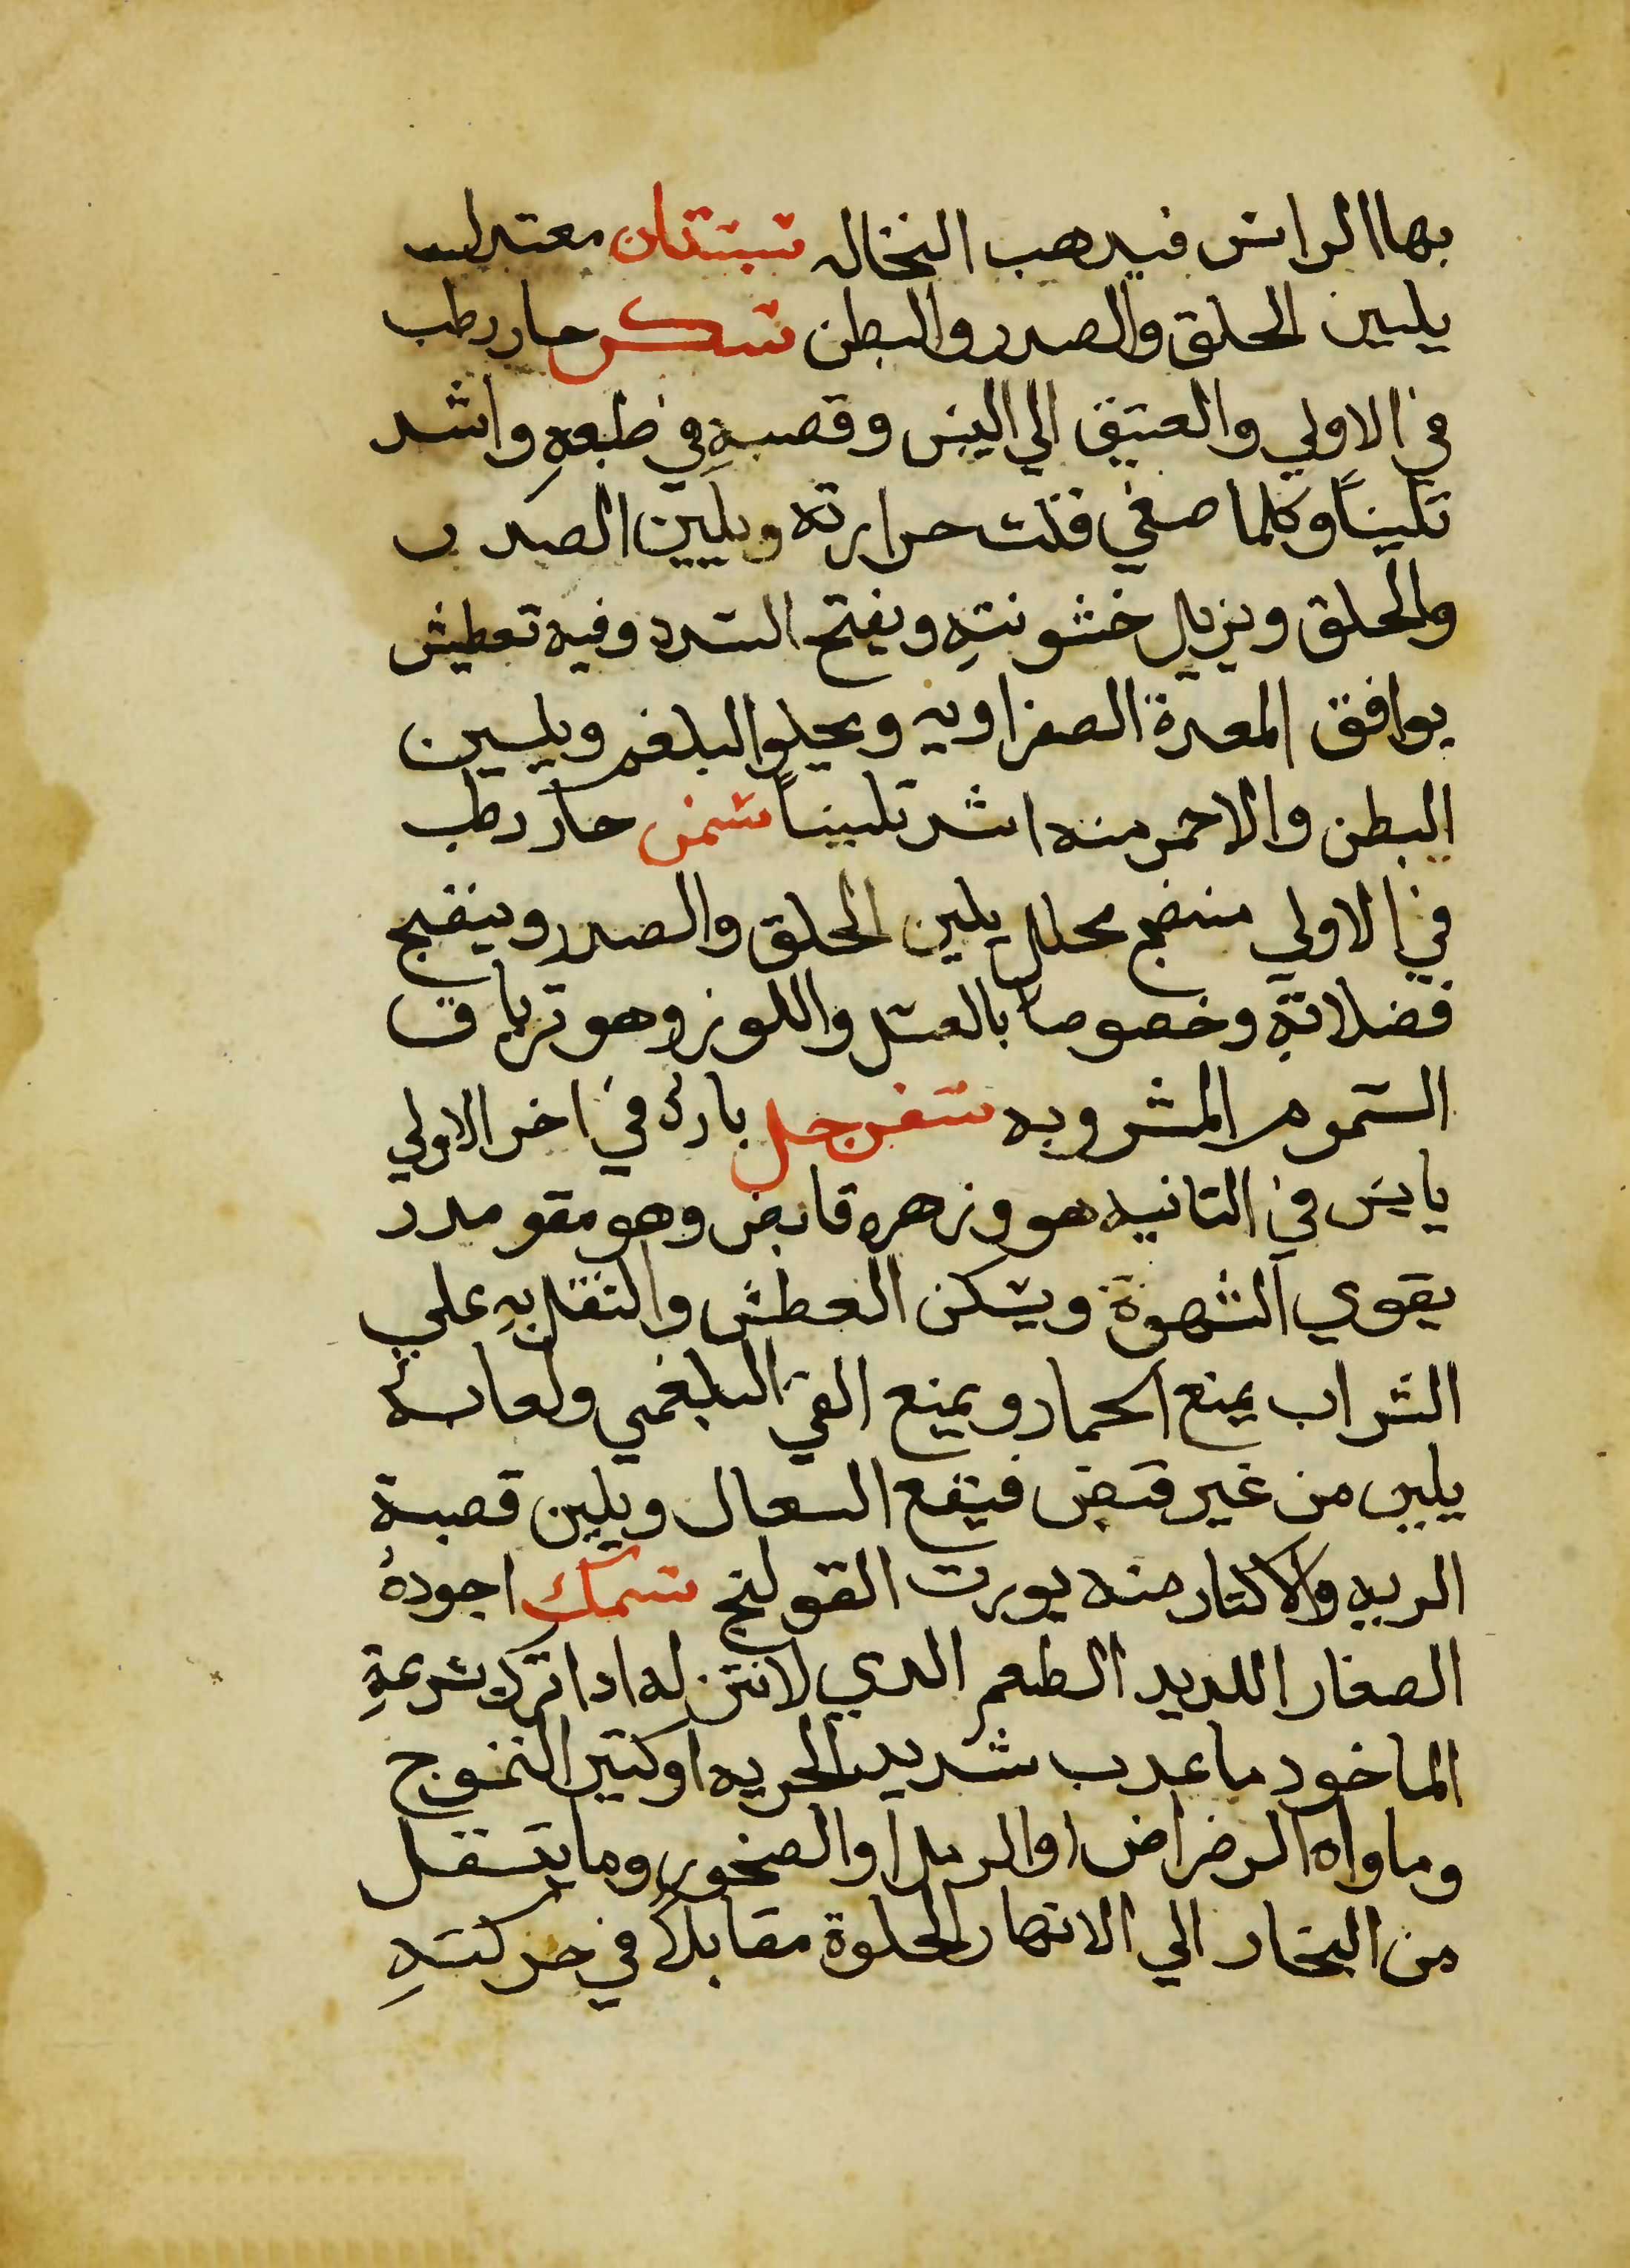 بها الراس فيدهب النخاله سبستان معتدل
يليين الحلق والصدر والبطن سكر حار رطب
في الاولي والعتيق الي اليبس وقصبهِ في طبعهِ واشد
تلييناً وكلما صفي قلت حرارته ويليين الصدر
والحلق ويزيل خشونتهِ ويفتح السدد وفيه تعطيش
يوافق المعدة الصفراويه ويجلوا البلغم ويليين
البطن والاحمر منه اشد تلييناً سمن حار رطب
في الاولي منضج محلل يلين الحلق والصدر وينضج
فضلاتهِ وخصوصاً بالعسل واللوز وهو ترياق
السموم المشروبه سفرجل بارد في اخر الاولي
يابس في التانيه هو وزهره قابض وهو مقو مدر
يقوي الشهوة ويسكن العطش والنقل بهِ علي
الشراب يمنع الخمار ويمنع القي البلغمي ولعابه
يلين من غير قبض فينفع السعال ويلين قصبة
الريه والاكتار منه يورت القولنج سمك اجودهُ
الصغار اللديد الطعم الدي لا نتن له ادا ترك بسرعةِ
الماخود ما عدب شديد الجريه او كتير التموج
وماواه الرضراض او الرمل او الصخور وما يتنقل
من البحار الي الانهار الحلوة مقابلاً في حركتهِ